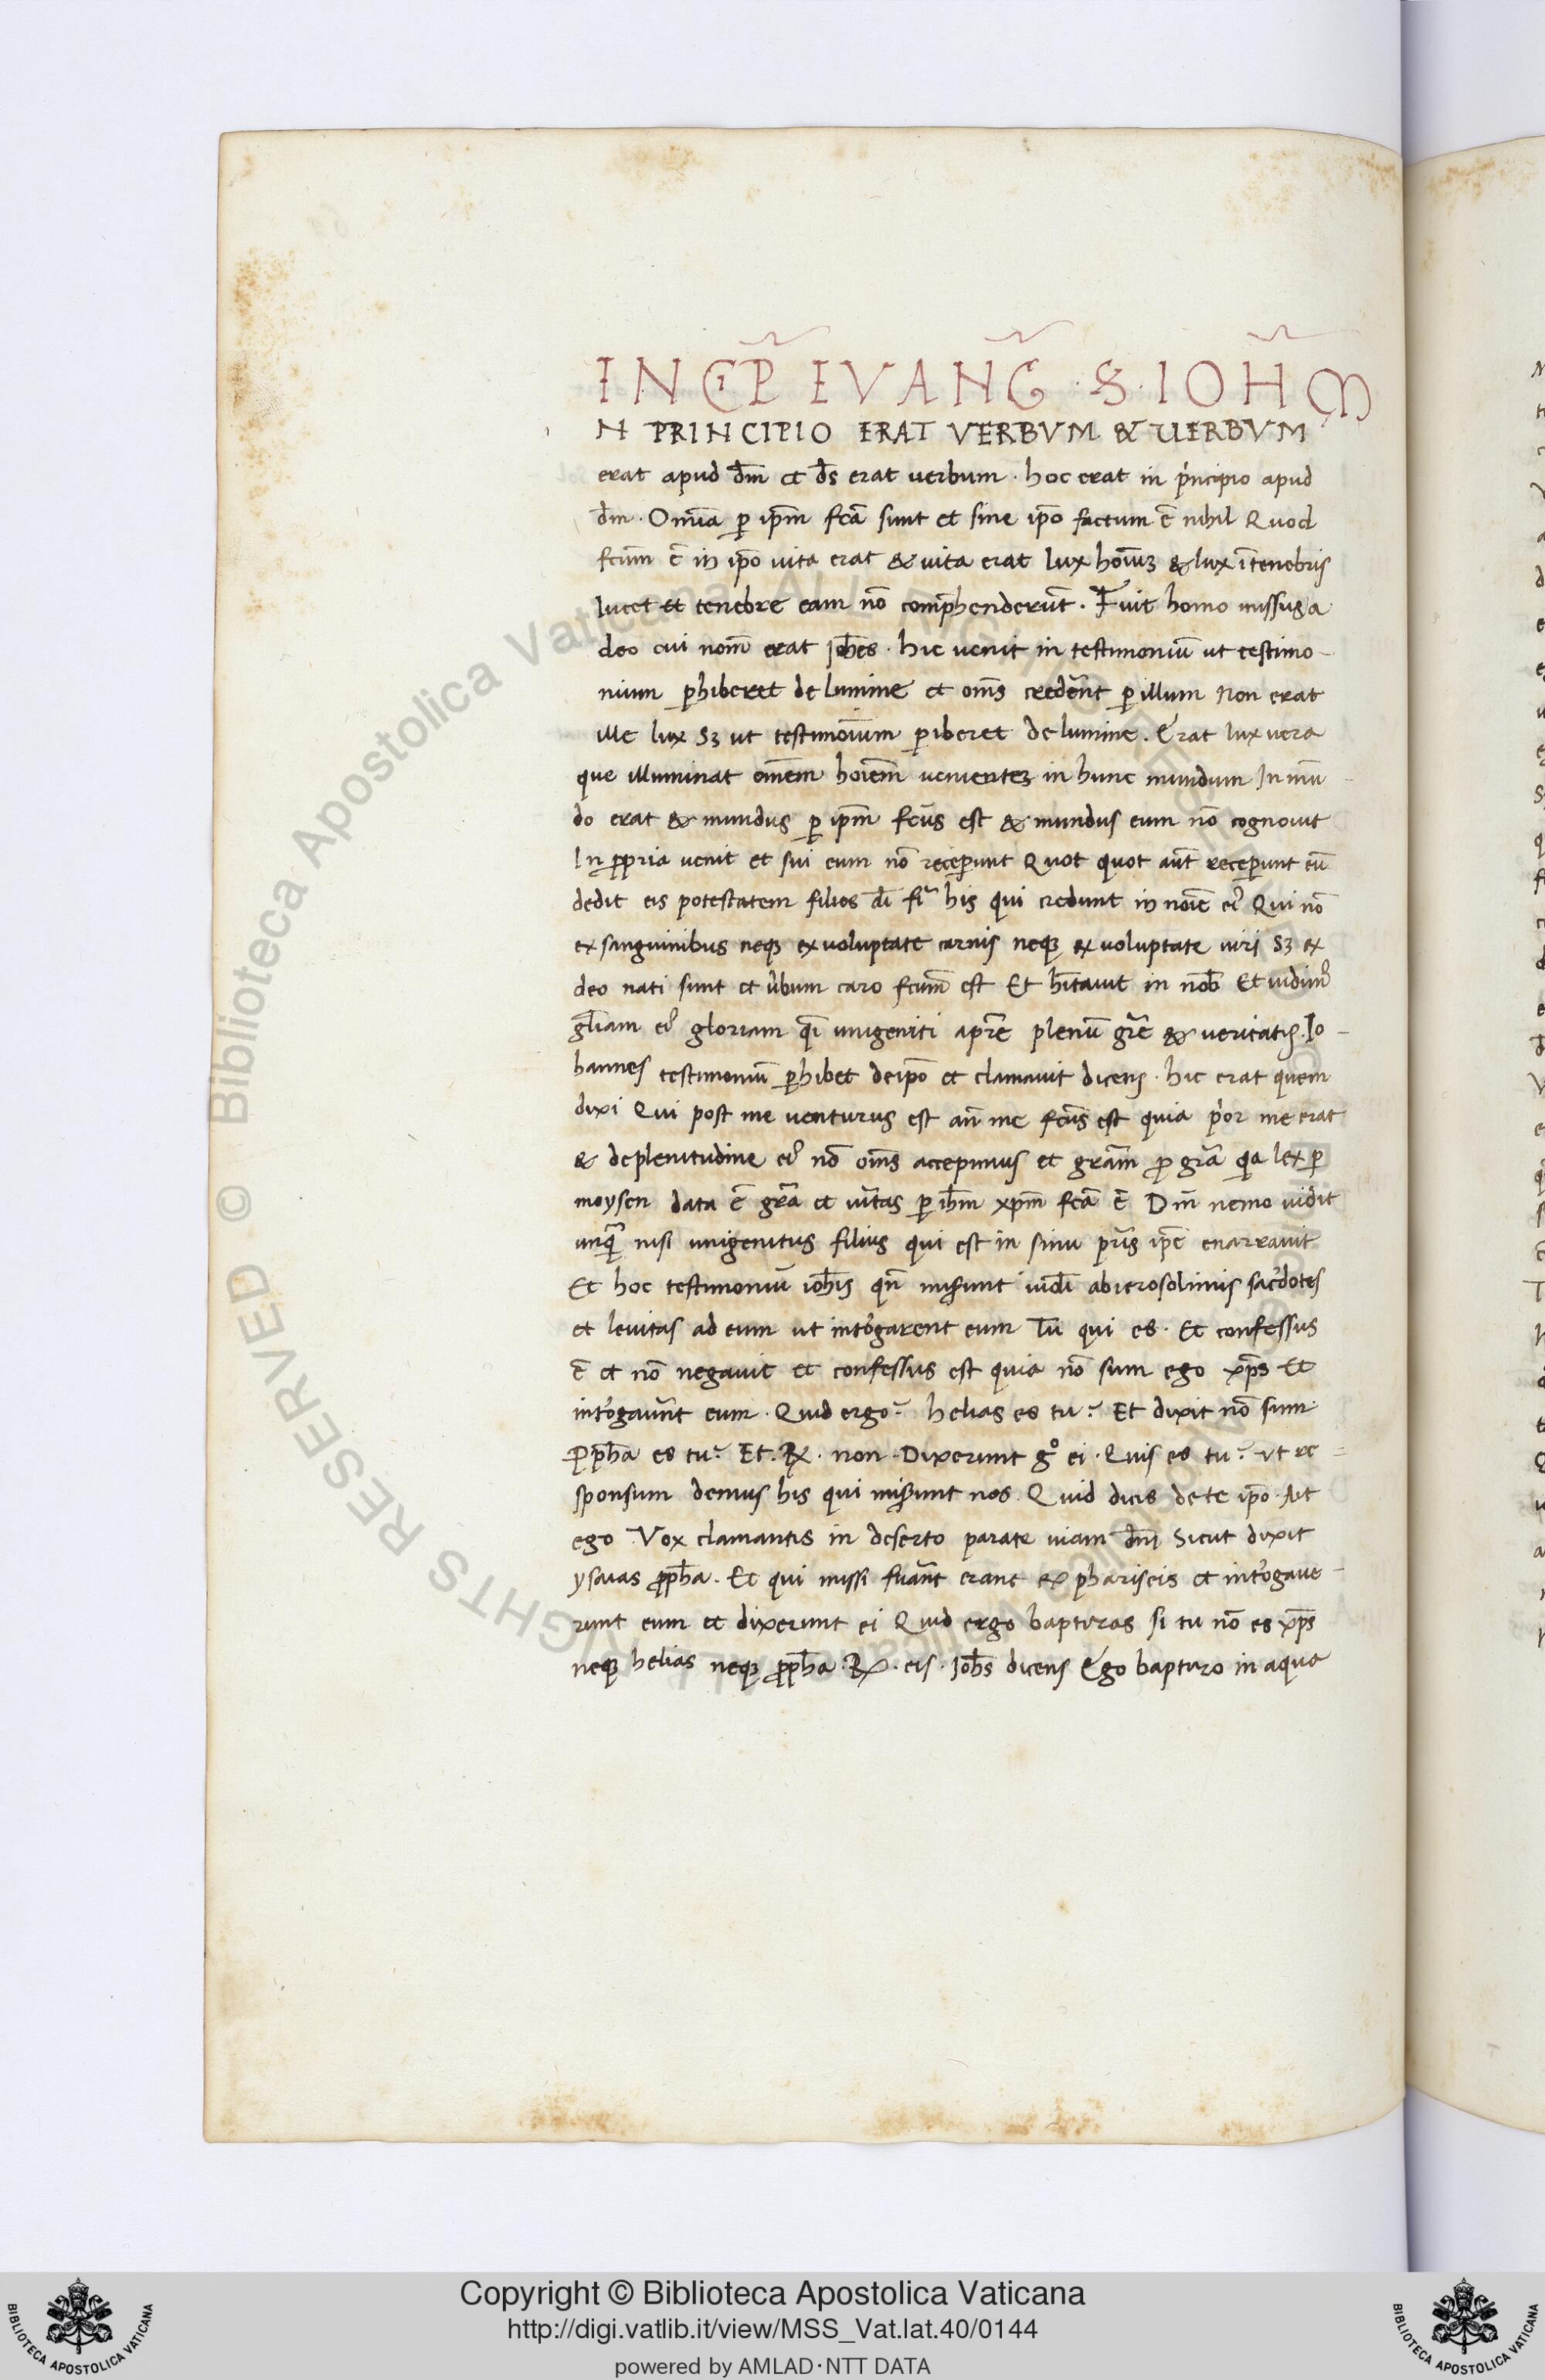 INCIP̃ EVANG̃ · S · IOH̃M
N PRINCIPIO ERAT VERBVM & UERBVM
erat apud dm̄ et ds̄ erat uerbum · hoc erat in p͛ncipio apud
dm̄ · Om̄ia ꝑ ip̄m fc̄a sunt et sine ip̄o factum ē nihil Quod
fcūm ē in ip̄o uita erat & uita erat lux hoīuꝫ & lux ī tenebris
lucet et tenebre eam nō comp̄henderūt . Fuit homo missus a
deo cui nom̄ erat Joh̄es · hic uenit in testimoniū ut testimo-
nium ꝑhiberet de lumine et om̄s credēnt ꝑ illum Non erat
ille lux Sꝫ ut testimoīum ꝑiberet de lumine . Erat lux uera
que illuminat om̄em hoīem uenienteꝫ in hunc mundum In mū-
do erat & mundus ꝑ ip̄m fcūs est & mundus eum nō cognouit
In ꝓpria uenit et sui eum nō receꝑunt Quot quot aūt receꝑunt eū
dedit eis potestatem filios dī fi᷑ his qui credunt in noīe ei᷒ Qui nō
ex sanguinibus neqꝫ ex uoluptate carnis neqꝫ ex uoluptate uiri Sꝫ ex
deo nati sunt et u͛bum caro fcūm est Et h̄itauit in nob̄ Et uidim᷒
gl̄iam ei᷒ gloriam qi᷈ unigeniti a pr̄e plenū gr̄e & ueritatis . Jo-
hannes testimoniū ꝑhibet de ip̄o et clamauit dicens · hic erat quem
dixi Qui post me uenturus est an̄ me fcūs est quia p͛or me erat
& de plenitudine ei᷒ nō om̄s accepimus et gr̄am ꝓ gr̄a qi᷈a lex ꝑ
moysen data ē gr̄a et uītas ꝑ ih̄m xp̄m fc̄a ē Dm̄ nemo uidit
unqᷓ nisi unigenitus filius qui est in sinu pr̄is ip̄e enarrauit
Et hoc testimoniū ioh̄is qn̄ miserunt iudī ab ierosolimis sac͛dotes
et leuitas ad eum ut int͛ogarent eum Tu qui es · Et confessus
ē et nō negauit et confessus est quia nō sum ego xp̄s Et
int͛ogaūnt eum · Quid ergo? helias es tu? Et dixit nō sum
Prop̄ha es tu? Et . ℞ · non · Dixerunt gͦ ei · Quis es tu? ut re=
sponsum demus his qui miserunt nos Quid dicis de te ip̄o · Ait
ego Vox clamantis in deserto parate uiam dnī Sicut dixit
ysaias ꝓp̄ha . Et qui missi fuānt erant ex phariseis et int͛ogaue-
runt eum et dixerunt ei Quid ergo baptizas si tu nō es xp̄s
neqꝫ helias neqꝫ ꝓp̄ha · ℞ · eis · Joh̄s dicens Ego baptizo in aqua
© Biblioteca Apostolica Vaticana ALL RIGHTS RESERVED
Copyright © Biblioteca Apostolica Vaticana
http://digi.vatlib.it/view/MSS_Vat.lat.40/0144
powered by AMLAD·NTT DATA
BIBLIOTECA APOSTOLICA VATICANA
BIBLIOTECA APOSTOLICA VATICANA